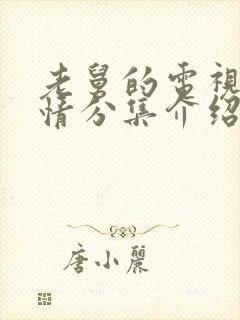 老舅的電視
情分集介紹
唐小麗